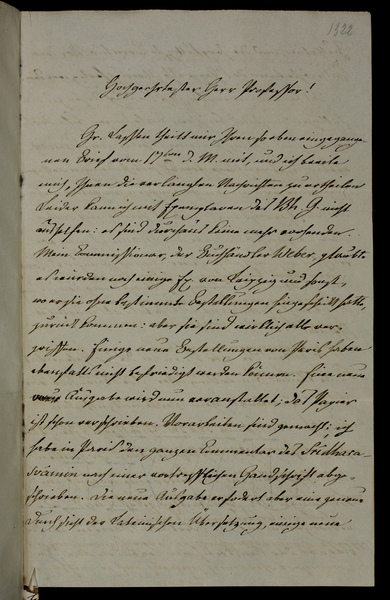 1822
Hochgeehrtester Herr Professor!
Hr. Lassen theilt mir Ihren so eben eingegange-
nen Brief vom 17ten d. M. mit, und ich beeile
mich, Ihnen die verlangten Nachrichten zu ertheilen
Leider kann ich mit Exemplaren des Bh. G. nicht
aufstehen: es sind durchaus keine mehr vorhanden.
Mein Commissionar, der Buchhändler Weber, glaubte
es würden noch einige Ex. von Leipzig und sonst,
wo er sie ohne bestimmte Bestellungen hingeschickt hatte,
zurück kommen: aber sie sind wirklich alle ver-
griffen. Einige neue Bestellungen von Paris haben
ebenfalls nicht befriedigt werden können. Eine neue
Ausgabe wird nun veranstaltet; das Papier
ist schon verschrieben. Vorarbeiten sind gemacht; ich
habe in Paris den ganzen Commentar des Sridhara-
svâmin nach einer vortrefflichen Handschrift abge-
schrieben. Die neue Ausgabe erfodert aber eine genaue
Durchsicht der Lateinischen Übersetzung, einige neue